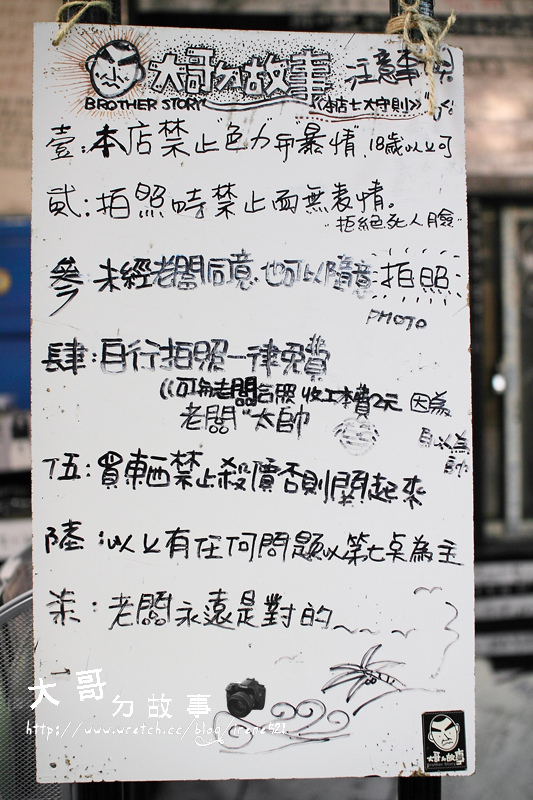 大哥ㄉ故事 注意事項
BROTHER STORY 《本店七大守則》
壹：本店禁止"色力和暴情"，18歲以上可
貳：拍照時禁止面無表情。
"拒絕死人臉"
參 未經老闆同意，也可以隨意拍照
PHOTO
肆：自行拍照一律免費
老闆"太帥
因為
自以為
帥
伍：買東西禁止殺價否則關起來
陸：以上有任何問題以第七點為主
柒：老闆永遠是對的
大哥ㄉ故事
http://www.wretch.cc/blog/irene521
大哥ㄉ故事
Brother Story